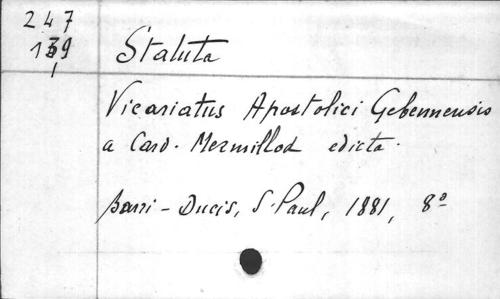 247
139
Statuta
Vicariatus Apostolici Gebennensis
a Card. Mermillod edicta.
Barri-Ducis, S. Paul, 1881, 8º